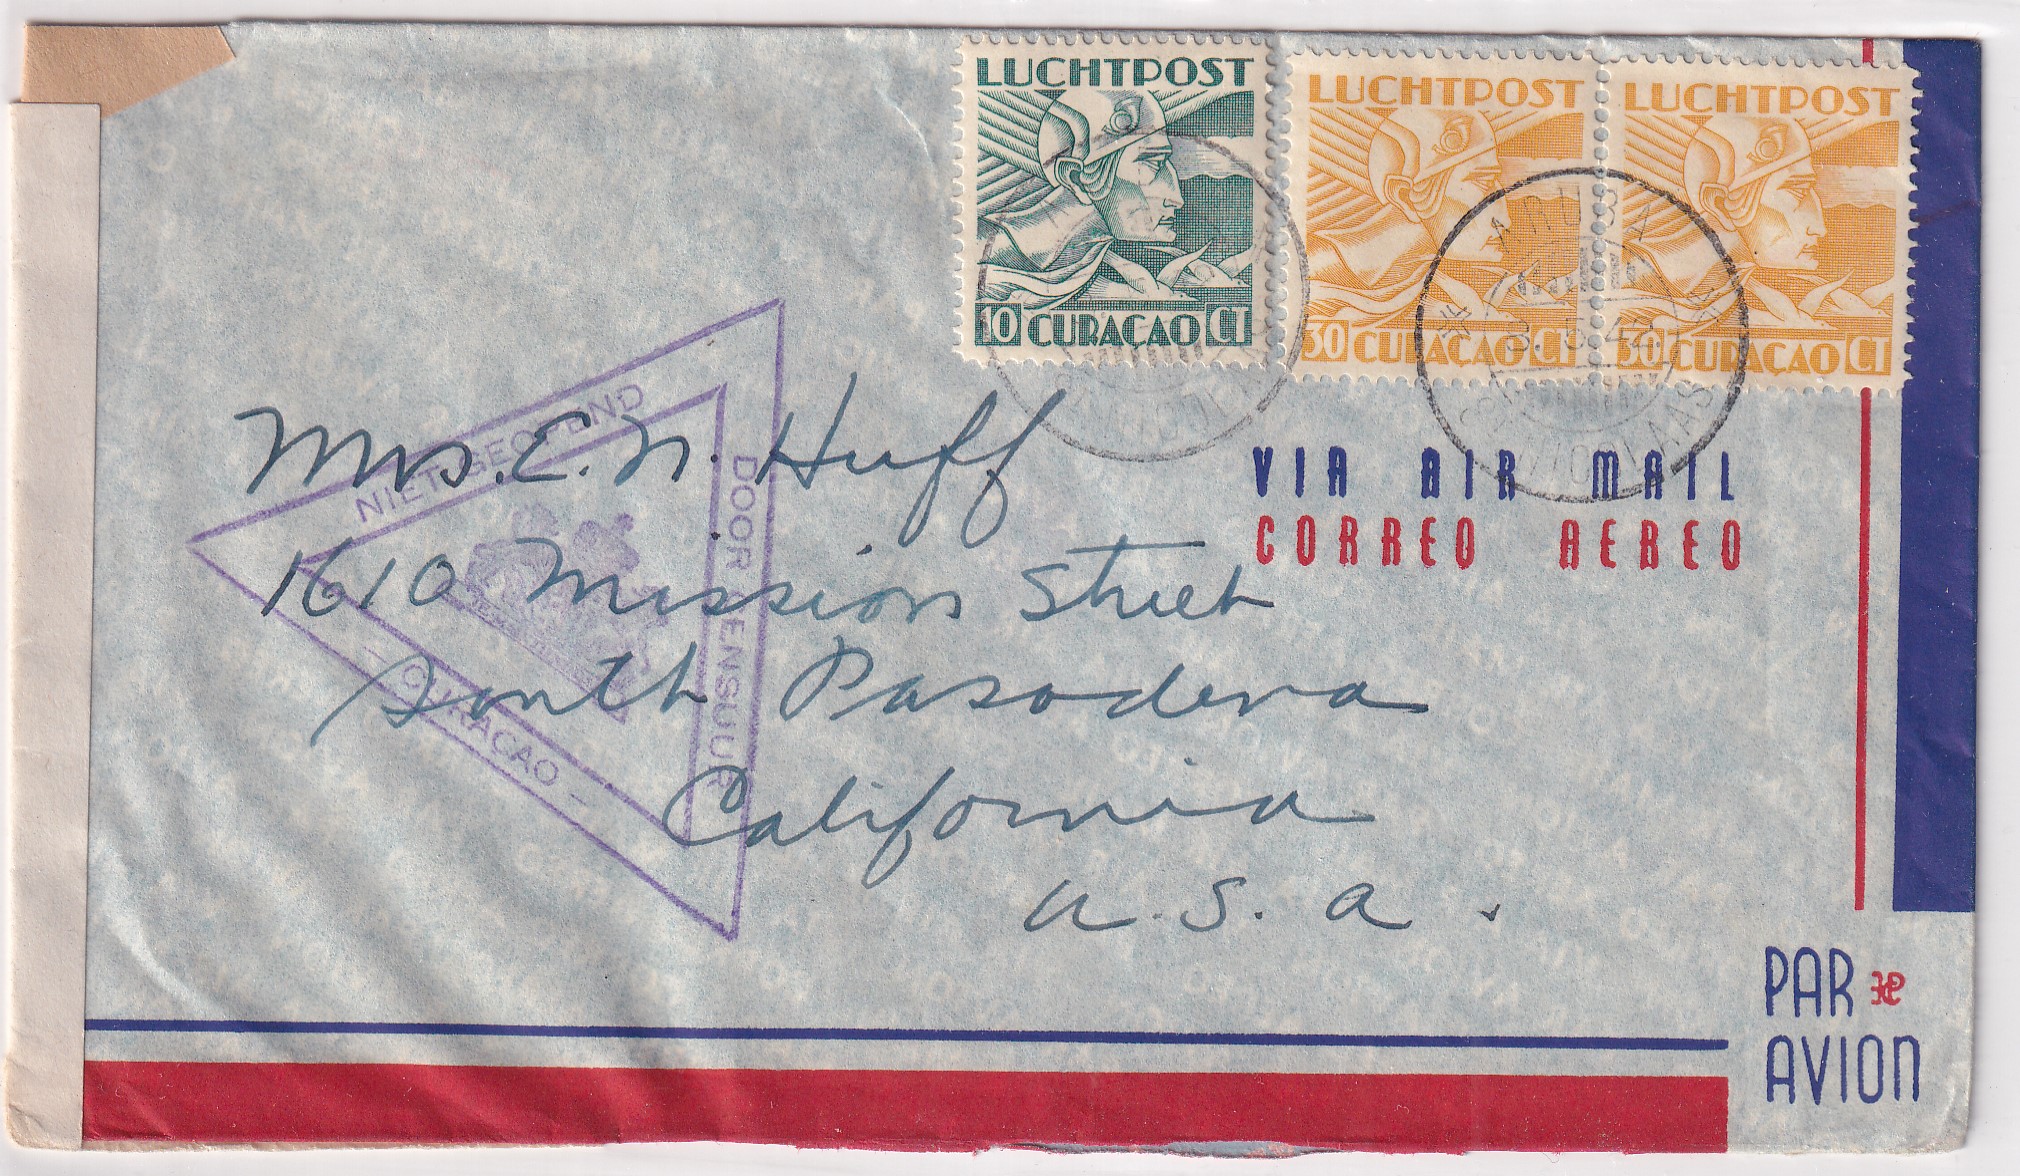 LUCHTPOST
10 CURAÇAO CT
LUCHTPOST
30 CURAÇAO CT
LUCHTPOST
30 CURAÇAO CT
ARUBA
NICOLAAS
VIA AIR MAIL
CORREO AEREO
NIET GEOPEND
DOOR CENSUUR
- CURACAO -
Mrs. E. N. Huff
1610 Mission Street
South Pasadena
California
U.S.A.
PAR
AVION